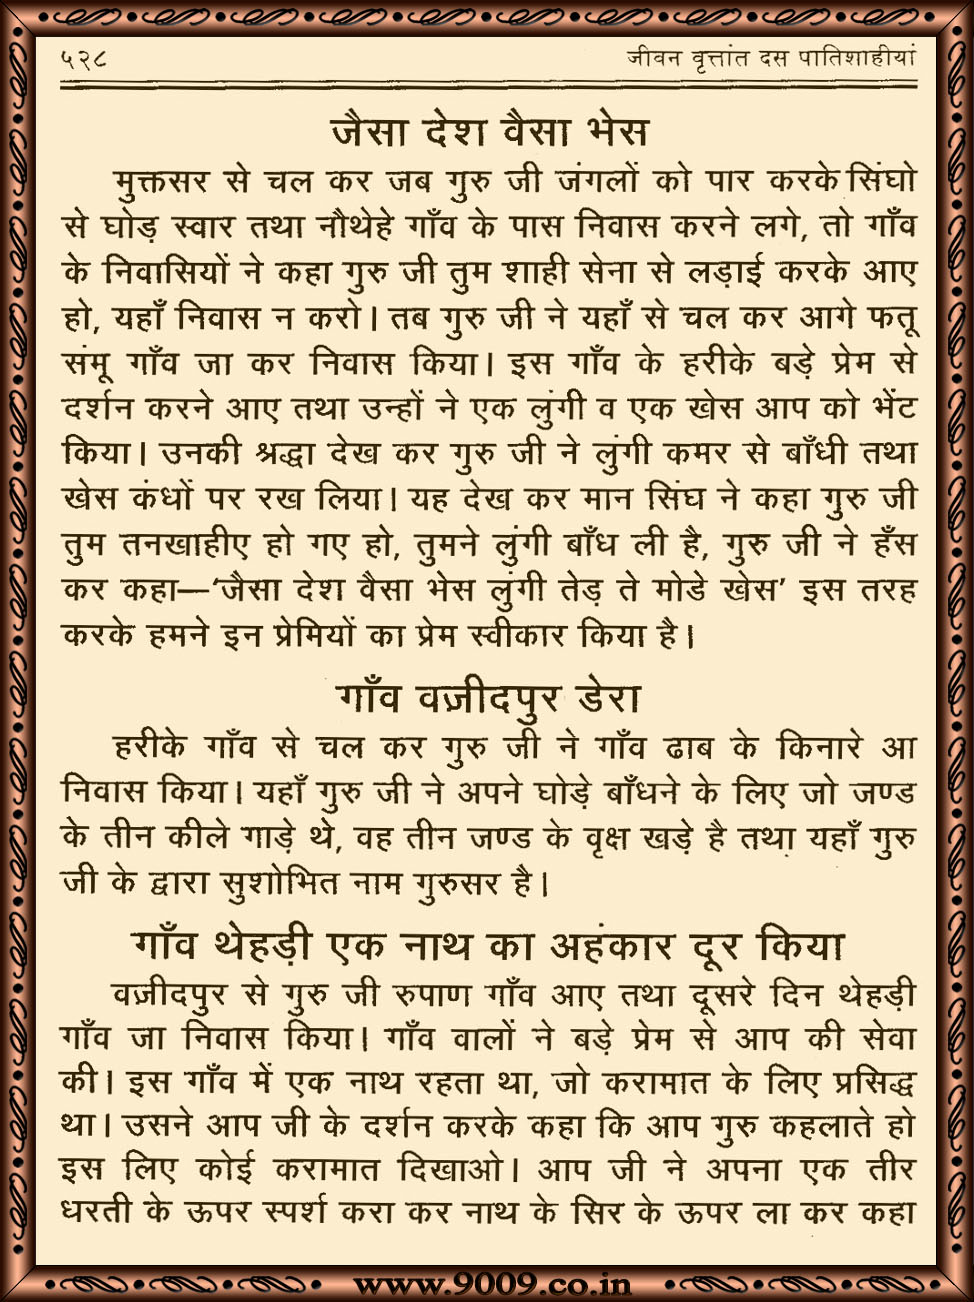 ५२८ जीवन वृत्तांत दस पातिशाहीयां
जैसा देश वैसा भेस
मुक्तसर से चल कर जब गुरु जी जंगलों को पार करके सिंघो
से घोड़ स्वार तथा नौथेहे गाँव के पास निवास करने लगे, तो गाँव
के निवासियों ने कहा गुरु जी तुम शाही सेना से लड़ाई करके आए
हो, यहाँ निवास न करो। तब गुरु जी ने यहाँ से चल कर आगे फतू
संमू गाँव जा कर निवास किया। इस गाँव के हरीके बड़े प्रेम से
दर्शन करने आए तथा उन्हों ने एक लुंगी व एक खेस आप को भेंट
किया। उनकी श्रद्धा देख कर गुरु जी ने लुंगी कमर से बाँधी तथा
खेस कंधों पर रख लिया। यह देख कर मान सिंघ ने कहा गुरु जी
तुम तनखाहीए हो गए हो, तुमने लुंगी बाँध ली है, गुरु जी ने हँस
कर कहा—‘जैसा देश वैसा भेस लुंगी तेड़ ते मोडे खेस’ इस तरह
करके हमने इन प्रेमियों का प्रेम स्वीकार किया है।
गाँव वज़ीदपुर डेरा
हरीके गाँव से चल कर गुरु जी ने गाँव ढाब के किनारे आ
निवास किया। यहाँ गुरु जी ने अपने घोड़े बाँधने के लिए जो जण्ड
के तीन कीले गाड़े थे, वह तीन जण्ड के वृक्ष खड़े है तथा यहाँ गुरु
जी के द्वारा सुशोभित नाम गुरुसर है।
गाँव थेहड़ी एक नाथ का अहंकार दूर किया
वज़ीदपुर से गुरु जी रुपाण गाँव आए तथा दूसरे दिन थेहड़ी
गाँव जा निवास किया। गाँव वालों ने बड़े प्रेम से आप की सेवा
की। इस गाँव में एक नाथ रहता था, जो करामात के लिए प्रसिद्ध
था। उसने आप जी के दर्शन करके कहा कि आप गुरु कहलाते हो
इस लिए कोई करामात दिखाओ। आप जी ने अपना एक तीर
धरती के ऊपर स्पर्श करा कर नाथ के सिर के ऊपर ला कर कहा
www.9009.co.in